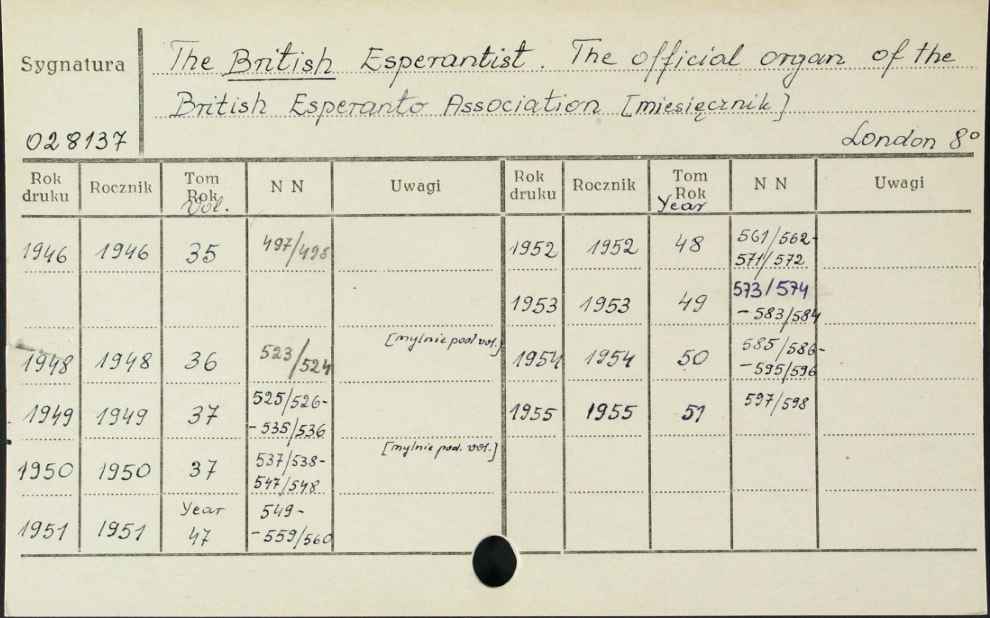 Sygnatura
The British Esperantist. The official organ of the
British Esperanto Association [miesięcznik]
028137
London 8°
Rok druku Rocznik Tom Rok Vol. N N Uwagi
1946 1946 35 497/498
1948 1948 36 523/524 [mylnie pod vol.]
1949 1949 37 525/526-
-535/536
1950 1950 37 537/538- [mylnie pod. vol.]
547/548
1951 1951 Year 47 549-
-559/560
Rok druku Rocznik Tom Rok Year N N Uwagi
1952 1952 48 561/562-
571/572
1953 1953 49 573/574
-583/584
1954 1954 50 585/586-
-595/596
1955 1955 51 597/598